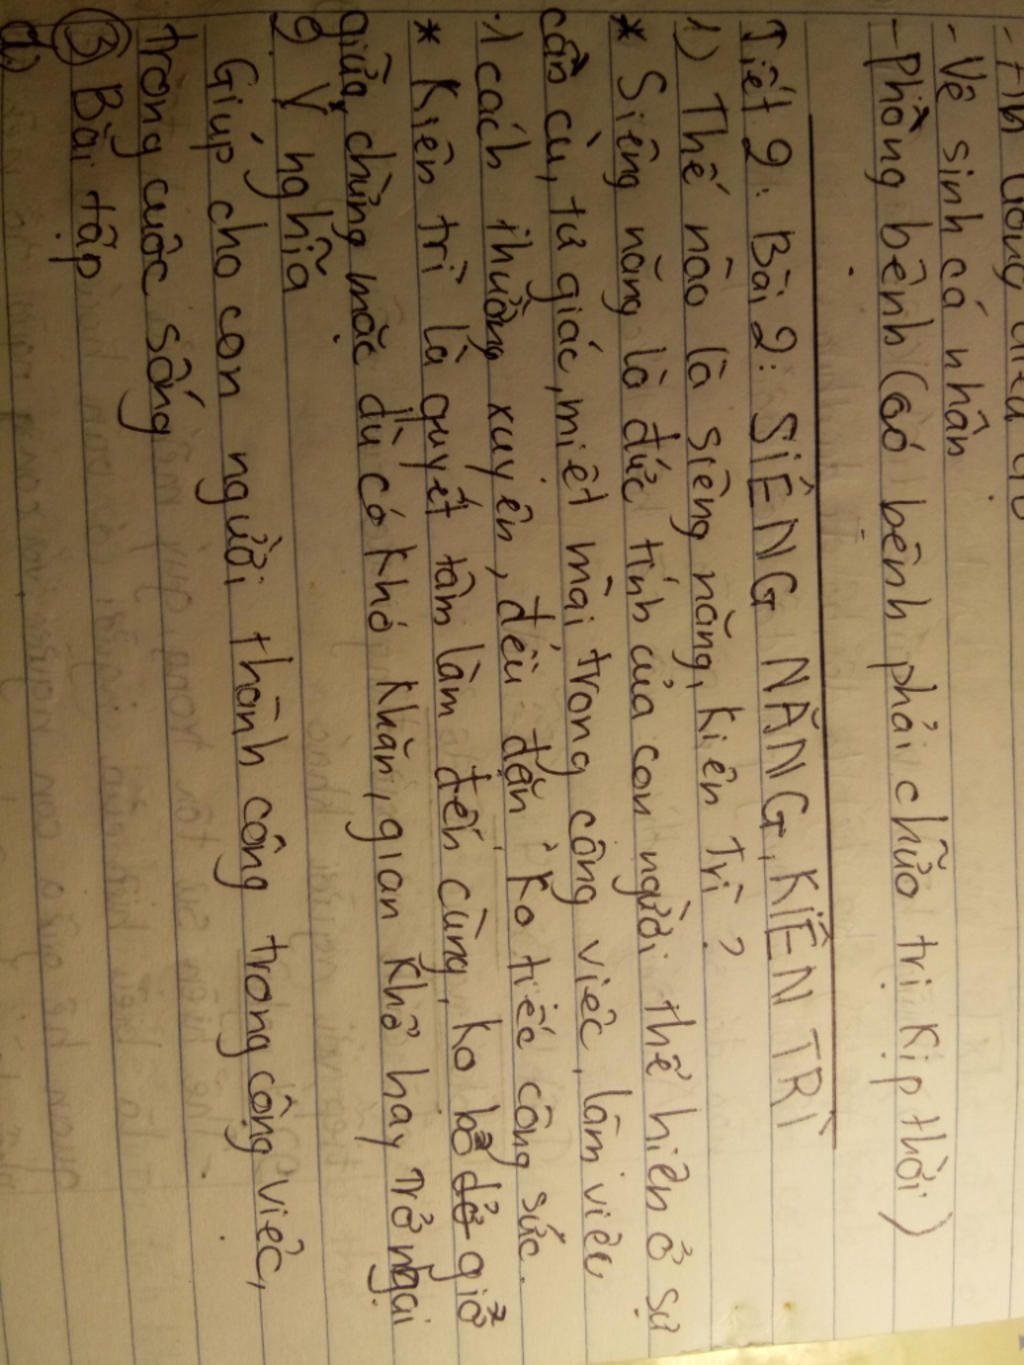 - Vệ sinh cá nhân
- Phòng bệnh (có bệnh phải chữa trị kịp thời)
Tiết 2: Bài 2: SIÊNG NĂNG, KIÊN TRÌ
1) Thế nào là siêng năng, kiên trì?
* Siêng năng là đức tính của con người thể hiện ở sự
cần cù, tự giác, miệt mài trong công việc, làm việc
1 cách thường xuyên, đều đặn, ko tiếc công sức.
* Kiên trì là quyết tâm làm đến cùng, ko bỏ dở giở
giữa chừng mặc dù có khó khăn, gian khổ hay trở ngại
2 Ý nghĩa
Giúp cho con người thành công trong công việc,
trong cuộc sống
3 Bài tập
a)